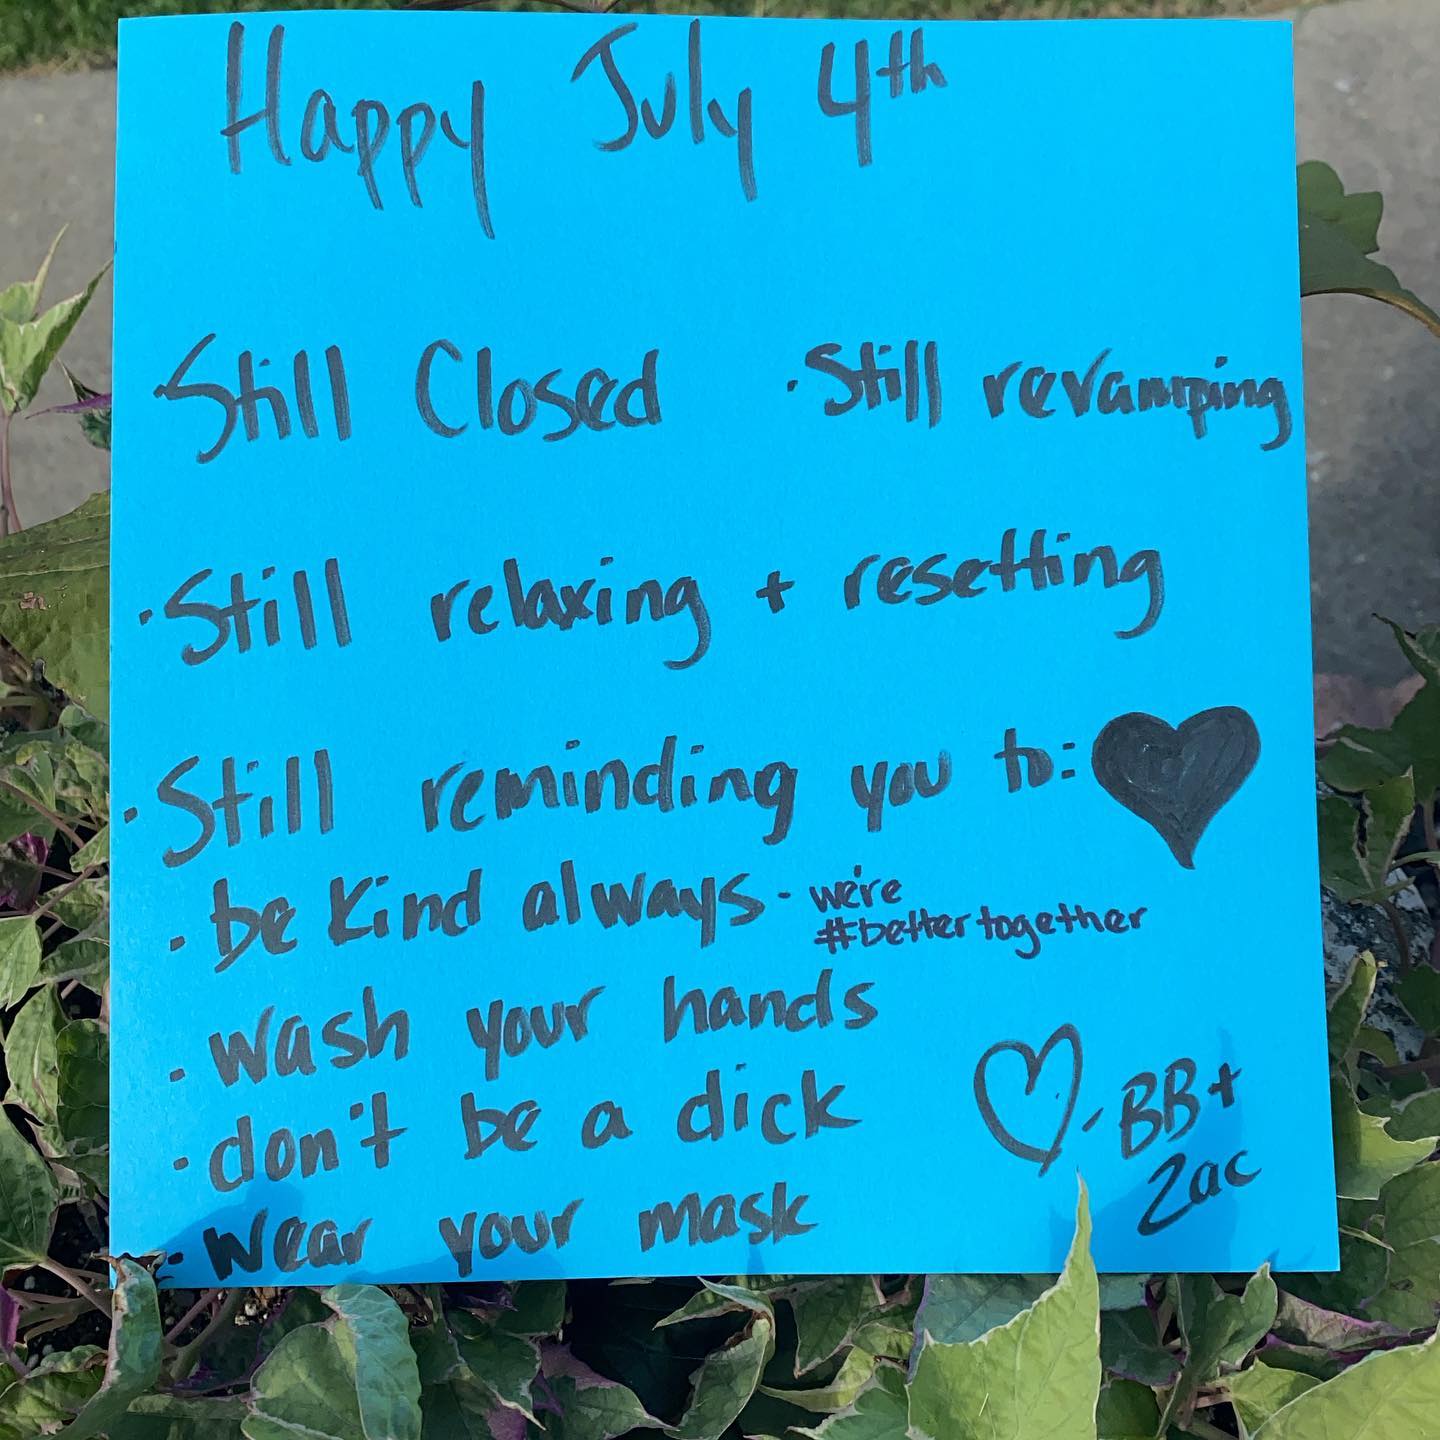 Happy July 4th
·Still Closed ·Still revamping
·Still relaxing + resetting
·Still reminding you to:
·be kind always - we're
#bettertogether
·wash your hands
·don't be a dick
·wear your mask
-BB+
Zac